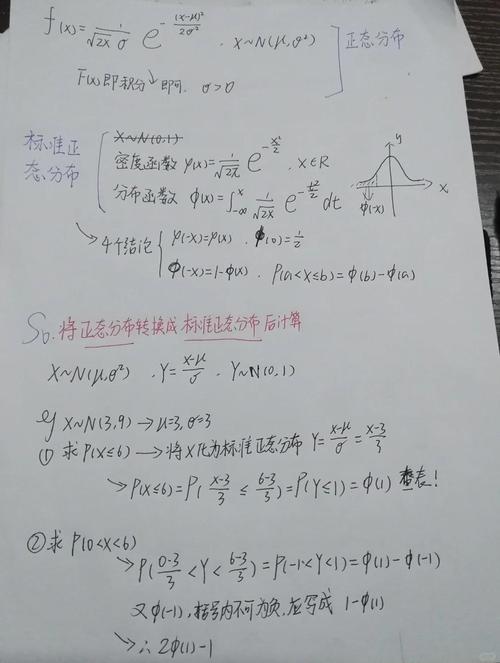 f(x)=1/√2π σ e^-(x-μ)²/2σ² . X~N(μ,σ²) 正态分布
F(x)即积分↓即可. σ>0
标准正态分布
X~N(0,1)
密度函数 φ(x)=1/√2π e^-x²/2 , x∈R
分布函数 Φ(x)=∫_-∞^x 1/√2π e^-t²/2 dt
y
x
Φ(-x)
4个结论 φ(-x)=φ(x) . Φ(0)=1/2
Φ(-x)=1-Φ(x) . P(a<x≤b)=Φ(b)-Φ(a)
S6.将正态分布转换成标准正态分布后计算
X~N(μ,σ²) . Y=x-μ/σ . Y~N(0,1)
eg X~N(3,9)→μ=3,σ=3
① 求P(X≤6)→将X化为标准正态分布 Y=x-μ/σ=x-3/3
→P(X≤6)=P(x-3/3≤6-3/3)=P(Y≤1)=Φ(1) 查表!
②求P(0<X<6)
→P(0-3/3<Y<6-3/3)=P(-1<Y<1)=Φ(1)-Φ(-1)
又Φ(-1),括号内不可为负,应写成 1-Φ(1)
→∴2Φ(1)-1